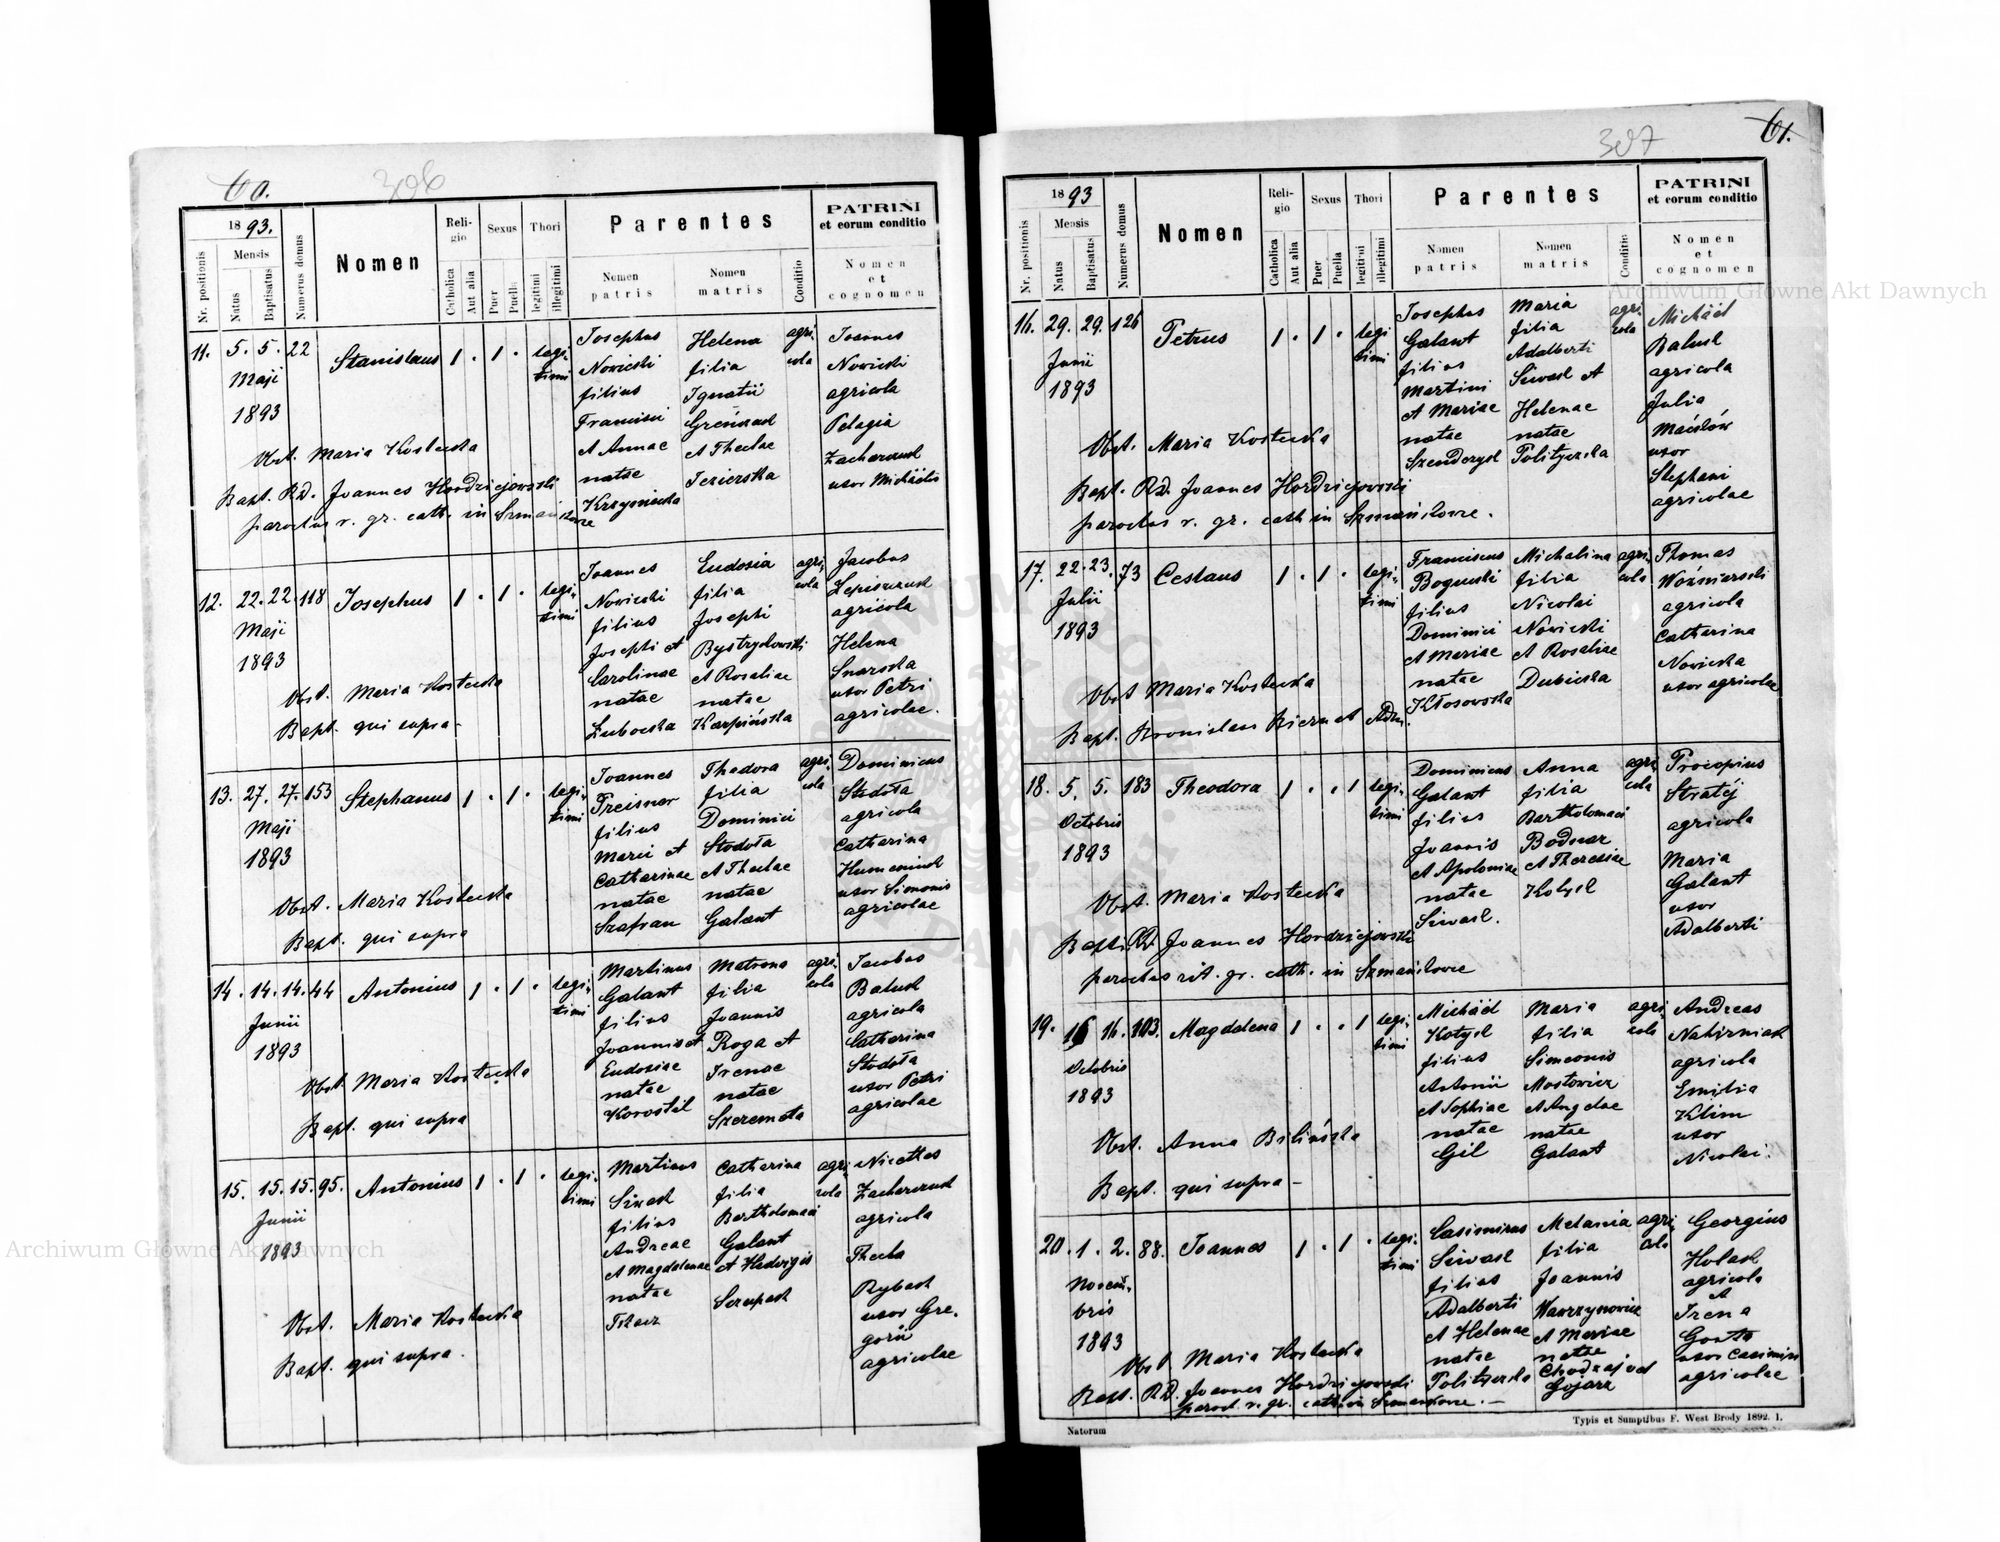 60.
306
1893.
Nr. positionis
Mensis
Natus
Baptisatus
Numerus domus
Nomen
Religio
Catholica
Aut alia
Sexus
Puer
Puella
Thori
legitimi
illegitimi
Parentes
Nomen patris
Nomen matris
Conditio
PATRINI
et eorum conditio
Nomen
et
cognomen
11. 5. 5. 22 Stanislaus 1 . 1 . legi-
timi
Maji
1893
Josephus
Nowicki
filius
Francisci
et Annae
natae
Krzysnicka
Helena
filia
Ignatii
et Theclae
Jezierska
agri-
cola
Joannes
Nowicki
agricola
Pelagia
Zacharczuk
uxor Michaelis
Obst. Maria Kostecka
Bapt. RD. Joannes Hordziejowski
parochus r. gr. cath. in Szmańkowce
12. 22. 22. 118 Josephus 1 . 1 . legi-
timi
Maji
1893
Joannes
Nowicki
filius
Josephi et
Carolinae
natae
Zubocka
Eudosia
filia
Josephi
Bystrzykowski
et Rosaliae
natae
Karpińska
agri-
cola
Jacobus
agricola
Helena
Snarska
uxor Petri
agricolae.
Obst. Maria Kostecka
Bapt. qui supra -
13. 27. 27. 153 Stephanus 1 . 1 . legi-
timi
Maji
1893
Joannes
Preisner
filius
Marci et
Catharinae
natae
Szafran
Theodora
filia
Dominici
Stodoła
et Theclae
natae
Galant
agri-
cola
Dominicus
Stodoła
agricola
Catharina
Humeniuk
uxor Simonis
agricolae
Obst. Maria Kostecka
Bapt. qui supra
14. 14. 14. 44 Antonius 1 . 1 . legi-
timi
Junii
1893
Martinus
Galant
filius
Joannis et
Eudosiae
natae
Korostil
Matrona
filia
Joannis
Roga et
Irenae
natae
Szeremeta
agri-
cola
Jacobus
Baluk
agricola
Catharina
Stodoła
uxor Petri
agricolae
Obst. Maria Kostecka
Bapt. qui supra
15. 15. 15. 95. Antonius 1 . 1 . legi-
timi
Junii
1893
Martinus
Siwak
filius
Andreae
et Magdalenae
natae
Tkacz
Catharina
filia
Bartholomaei
Galant
et Hedvigis
Szczupak
agri-
cola
Nicetas
Zacharczuk
agricola
Thecla
Rybak
uxor Gre-
gorii
agricolae
Obst. Maria Kostecka
Bapt. qui supra.
61.
307
1893
Nr. positionis
Mensis
Natus
Baptisatus
Numerus domus
Nomen
Religio
Catholica
Aut alia
Sexus
Puer
Puella
Thori
legitimi
illegitimi
Parentes
Nomen patris
Nomen matris
Conditio
PATRINI
et eorum conditio
Nomen
et
cognomen
16. 29. 29. 126 Petrus 1 . 1 . legi
timi
Junii
1893
Josephus
Galant
filius
Martini
et Mariae
natae
Maria
filia
Adalberti
Siwak et
Helenae
natae
Polityńska
agri-
cola
Michael
Baluk
agricola
Julia
uxor
Stephani
agricolae
Obst. Maria Kostecka
Bapt. RD. Joannes Hordziejowski
parochus r. gr. cath in Szmańkowce.
17. 22. 23. 73 Ceslaus 1 . 1 . legi-
timi
Julii
1893
Franciscus
Bogucki
filius
Dominici
et Mariae
natae
Kłosowska
Michalina
filia
Nicolai
Nowicki
et Rosaliae
Dubicka
agri-
cola
Thomas
Woźnierski
agricola
Catharina
Nowicka
uxor agricolae
Obst Maria Kostecka
Bapt. Bronislaus Biernat Adm.
18. 5. 5. 183 Theodora 1 . . 1 legi-
timi
Octobris
1893
Dominicus
Galant
filius
Joannis
et Apoloniae
natae
Siwak.
Anna
filia
Bartholomaei
Bodnar
et Theresiae
Kotyk
agri-
cola
Procopius
Stratij
agricola
Maria
Galant
uxor
Adalberti
Obst. Maria Kostecka
Bapt. RD. Joannes Hordziejowski
parochus rit. gr. cath. in Szmańkowce
19. 16 16. 103. Magdalena 1 . . 1 legi-
timi
Octobris
1893
Michael
Kotyk
filius
Antonii
et Sophiae
natae
Gil
Maria
filia
Simeonis
Mostowicz
et Angelae
natae
Galant
agri-
cola
Andreas
Nahirniak
agricola
Emilia
Klim
uxor
Nicolai.
Obst. Anna Bilińska
Bapt. qui supra -
20. 1. 2. 88. Joannes 1 . 1 . legi-
timi
Novem-
bris
1893
Casimirus
Siwak
filius
Adalberti
et Helenae
natae
Polityńska
Melania
filia
Joannis
Wawrzynowicz
et Mariae
natae
agri-
cola
Georgius
Holak
agricola
et
Irena
uxor Casimiri
agricolae
Obst Maria Kostecka
Bapt. RD. Joannes Hordziejowski
paroch r. gr. cath in Szmańkowce. -
Natorum
Typis et Sumptibus F. West Brody 1892. 1.
Archiwum Główne Akt Dawnych
Archiwum Główne Akt Dawnych